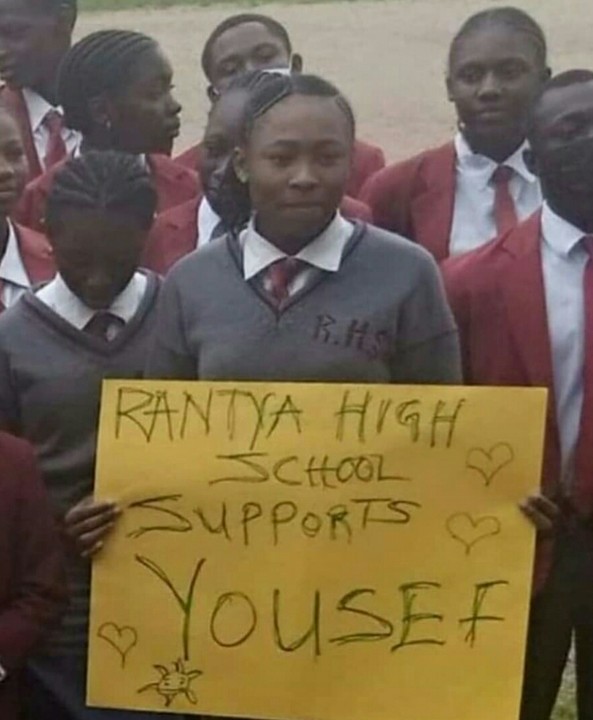 R.H.S
RANTYA HIGH
SCHOOL
SUPPORTS
YOUSEF